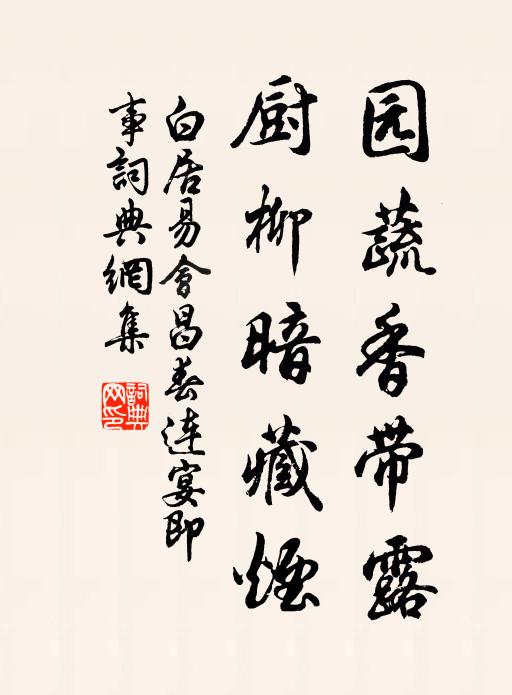 园蔬香带露
厨柳暗藏煙
白居易會昌春連宴即
事詞典網集
詞典
网印